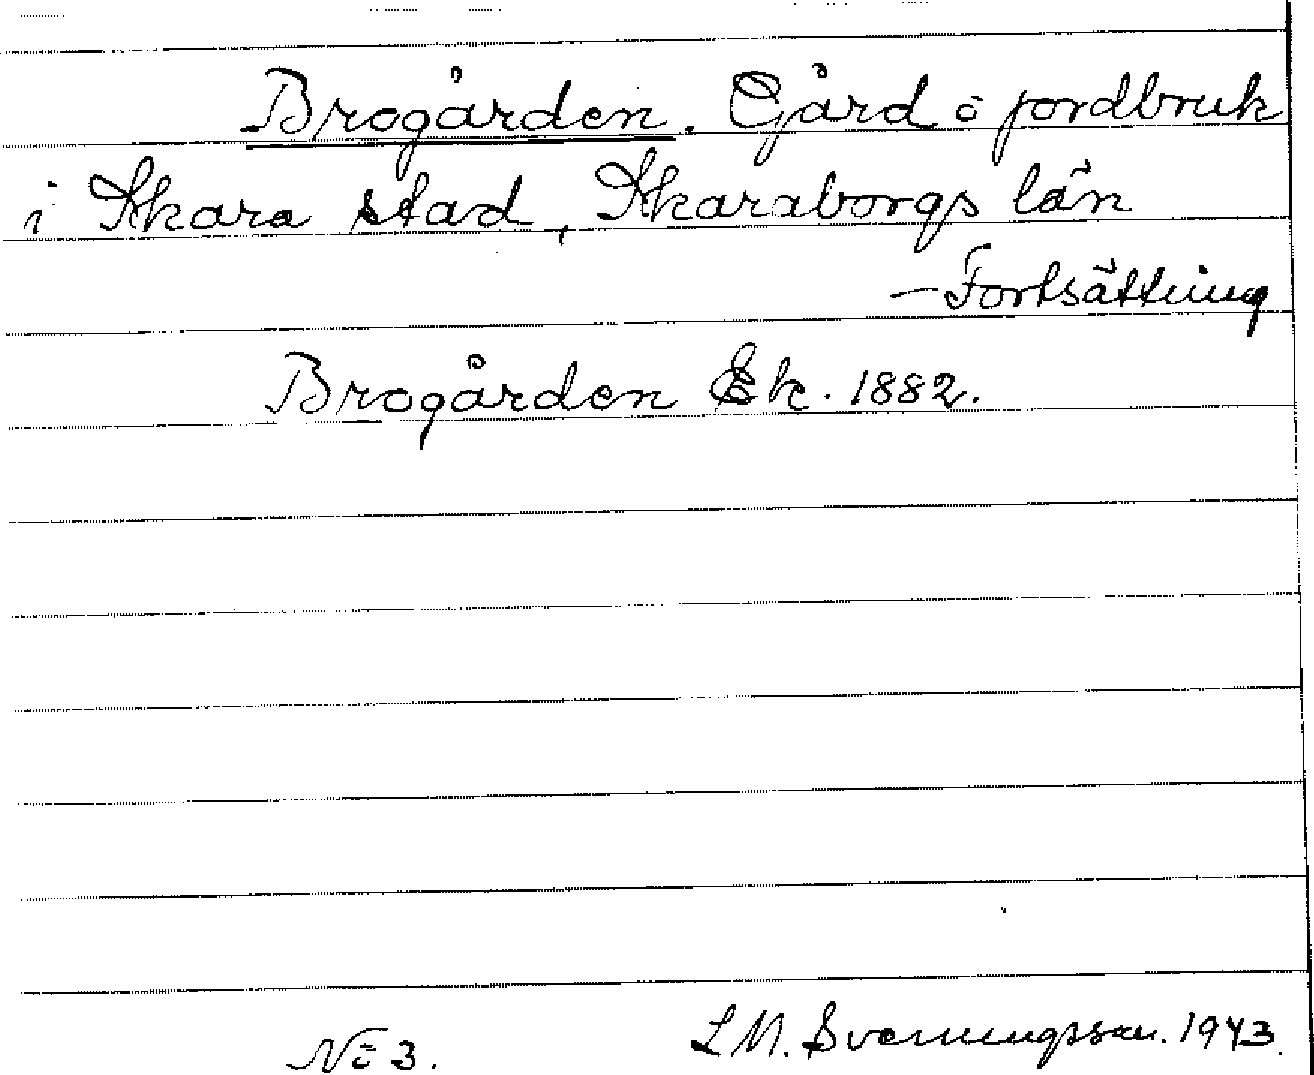 Brogården. Gård o jordbruk
i Skara stad, Skaraborgs län
– Fortsättning
Brogården Ek. 1882.
No 3. L M. Svenningsson. 1943.